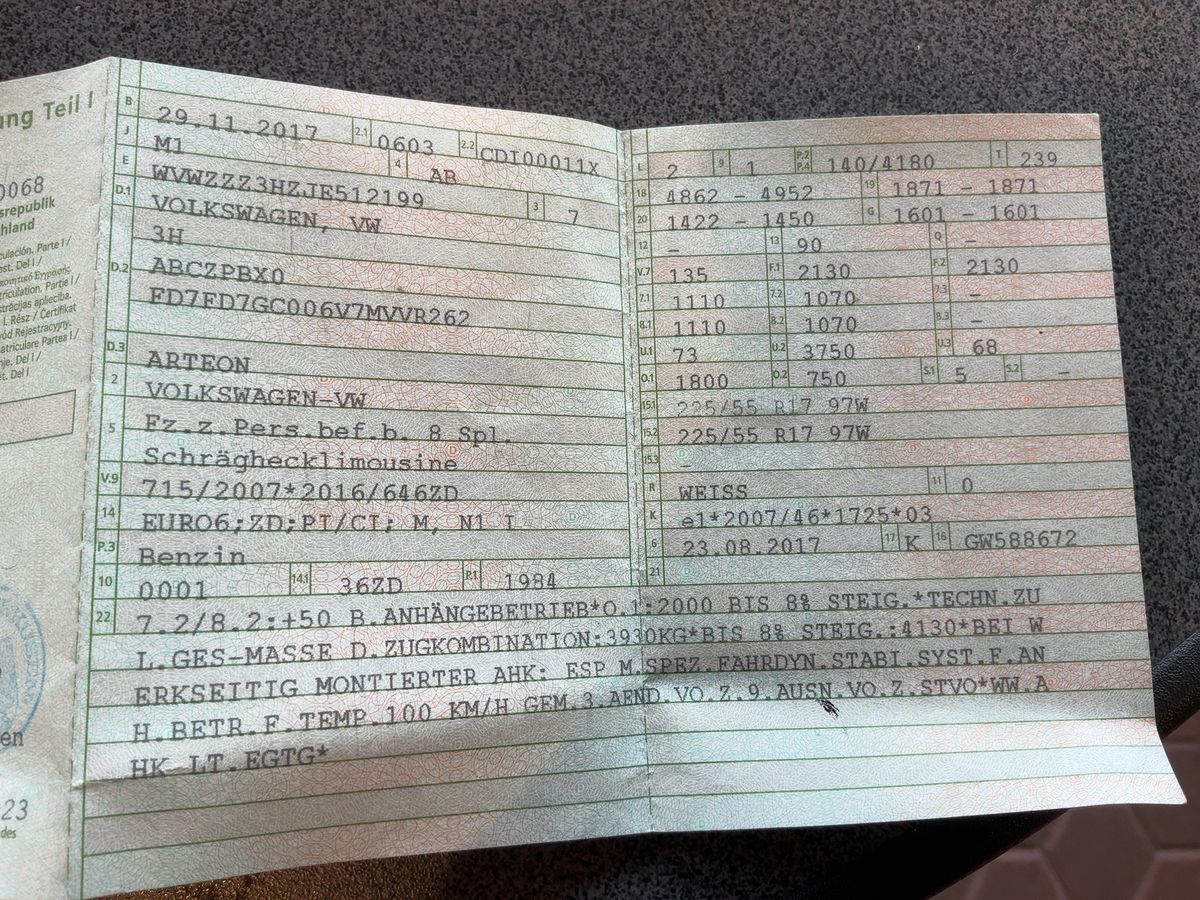 ung Teil I
0068
srepublik
hland
culación. Parte I /
ast. Del I /
triculation. Partie I /
strācijas apliecība.
I. Rész / Certifikat
wód Rejestracyjny.
matriculare Partea I /
nje. Del I /
st. Del I
en
23
des
B 29.11.2017 2.1 0603 2.2 CDI00011X
J M1 4 AB
E WVWZZZ3HZJE512199 3 7
D.1 VOLKSWAGEN, VW
3H
D.2 ABCZPBX0
FD7FD7GC006V7MVVR262
D.3 ARTEON
2 VOLKSWAGEN-VW
5 Fz.z.Pers.bef.b. 8 Spl.
Schräghecklimousine
V.9 715/2007*2016/646ZD
14 EURO6;ZD;PI/CI; M, N1 I
P.3 Benzin
10 0001 14.1 36ZD P.1 1984
L 2 9 1 P.2 P.4 140/4180 T 239
18 4862 - 4952 19 1871 - 1871
20 1422 - 1450 G 1601 - 1601
12 - 13 90 Q -
V.7 135 F.1 2130 F.2 2130
7.1 1110 7.2 1070 7.3 -
8.1 1110 8.2 1070 8.3 -
U.1 73 U.2 3750 U.3 68
O.1 1800 O.2 750 S.1 5 S.2 -
15.1 225/55 R17 97W
15.2 225/55 R17 97W
15.3 -
R WEISS 11 0
K e1*2007/46*1725*03
6 23.08.2017 17 K 16 GW588672
21
22 7.2/8.2:+50 B.ANHÄNGEBETRIEB*O.1:2000 BIS 8% STEIG.*TECHN.ZU
L.GES-MASSE D.ZUGKOMBINATION:3930KG*BIS 8% STEIG.:4130*BEI W
ERKSEITIG MONTIERTER AHK: ESP M.SPEZ.FAHRDYN.STABI.SYST.F.AN
H.BETR.F.TEMP.100 KM/H GEM.3.AEND.VO.Z.9.AUSN.VO.Z.STVO*WW.A
HK LT.EGTG*